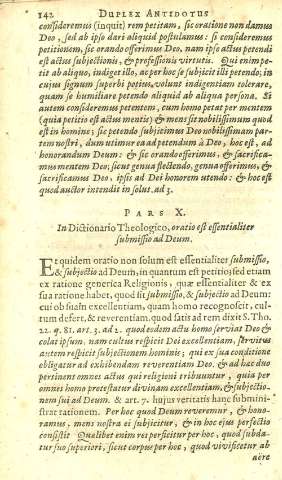 142 DUPLEX ANTIDOTUS
consideremus (inquit) rem petitam, sic oratione non damus
Deo, sed ab ipso dari aliquid postulamus: si consideremus
petitionem, sic orando offerimus Deo, nam ipse actus petendi
est actus subiectionis, & professionis virtutis. Qui enim pe-
tit ab aliquo, indiget illo, ac per hoc se subjicit illi petendo; in
cujus signum superbi potius volunt indigentiam tolerare,
quam se humiliare petendo aliquid ab aliqua persona. Si
autem consideremus petentem, cum homo petat per mentem
(quia petitio est actus mentis) & mens sit nobilissimum quod
est in homine; sic petendo subjicimus Deo nobilissimam par-
tem nostri, dum utimur ea ad petendum à Deo, hoc est, ad
honorandum Deum: & sic orando offerimus, & sacrifica-
mus mentem Deo; sicut genua flectendo, genua offerimus, &
sacrificamus Deo. ipsi ad Dei honorem utendo: & hoc est
quod auctor intendit in solut. ad 3.
PARS X.
In Dictionario Theologico, oratio est essentialiter
submissio ad Deum.
Et quidem oratio non solum est essentialiter submissio,
& subjectio ad Deum, in quantum est petitio; sed etiam
ex ratione generica Religionis, quæ essentialiter & ex
sua ratione habet, quod sit submissio, & subjectio ad Deum:
cui ob suam excellentiam, quam homo recognoscit, cul-
tum defert, & reverentiam. quod satis ad rem dixit S. Tho.
22. q. 81. art. 3. ad 2. quod eodem actu homo servit Deo &
colat ipsum. nam cultus respicit Dei excellentiam, servitus
autem respicit subjectionem hominis; qui ex sua conditione
obligatur ad exhibendam reverentiam Deo, & ad hæc duo
pertinent omnes actus qui religioni tribuuntur, quia per
omnes homo protestatur divinam excellentiam, & subjectio-
nem sui ad Deum. & art. 7. hujus veritatis hanc submini-
strat rationem. Per hoc quod Deum reveremur, & hono-
ramus, mens nostra ei subjicitur, & in hoc ejus perfectio
consistit Quælibet enim res perficitur per hoc, quod subda-
tur suo superiori, sicut corpus per hoc, quod vivificatur ab
aëre